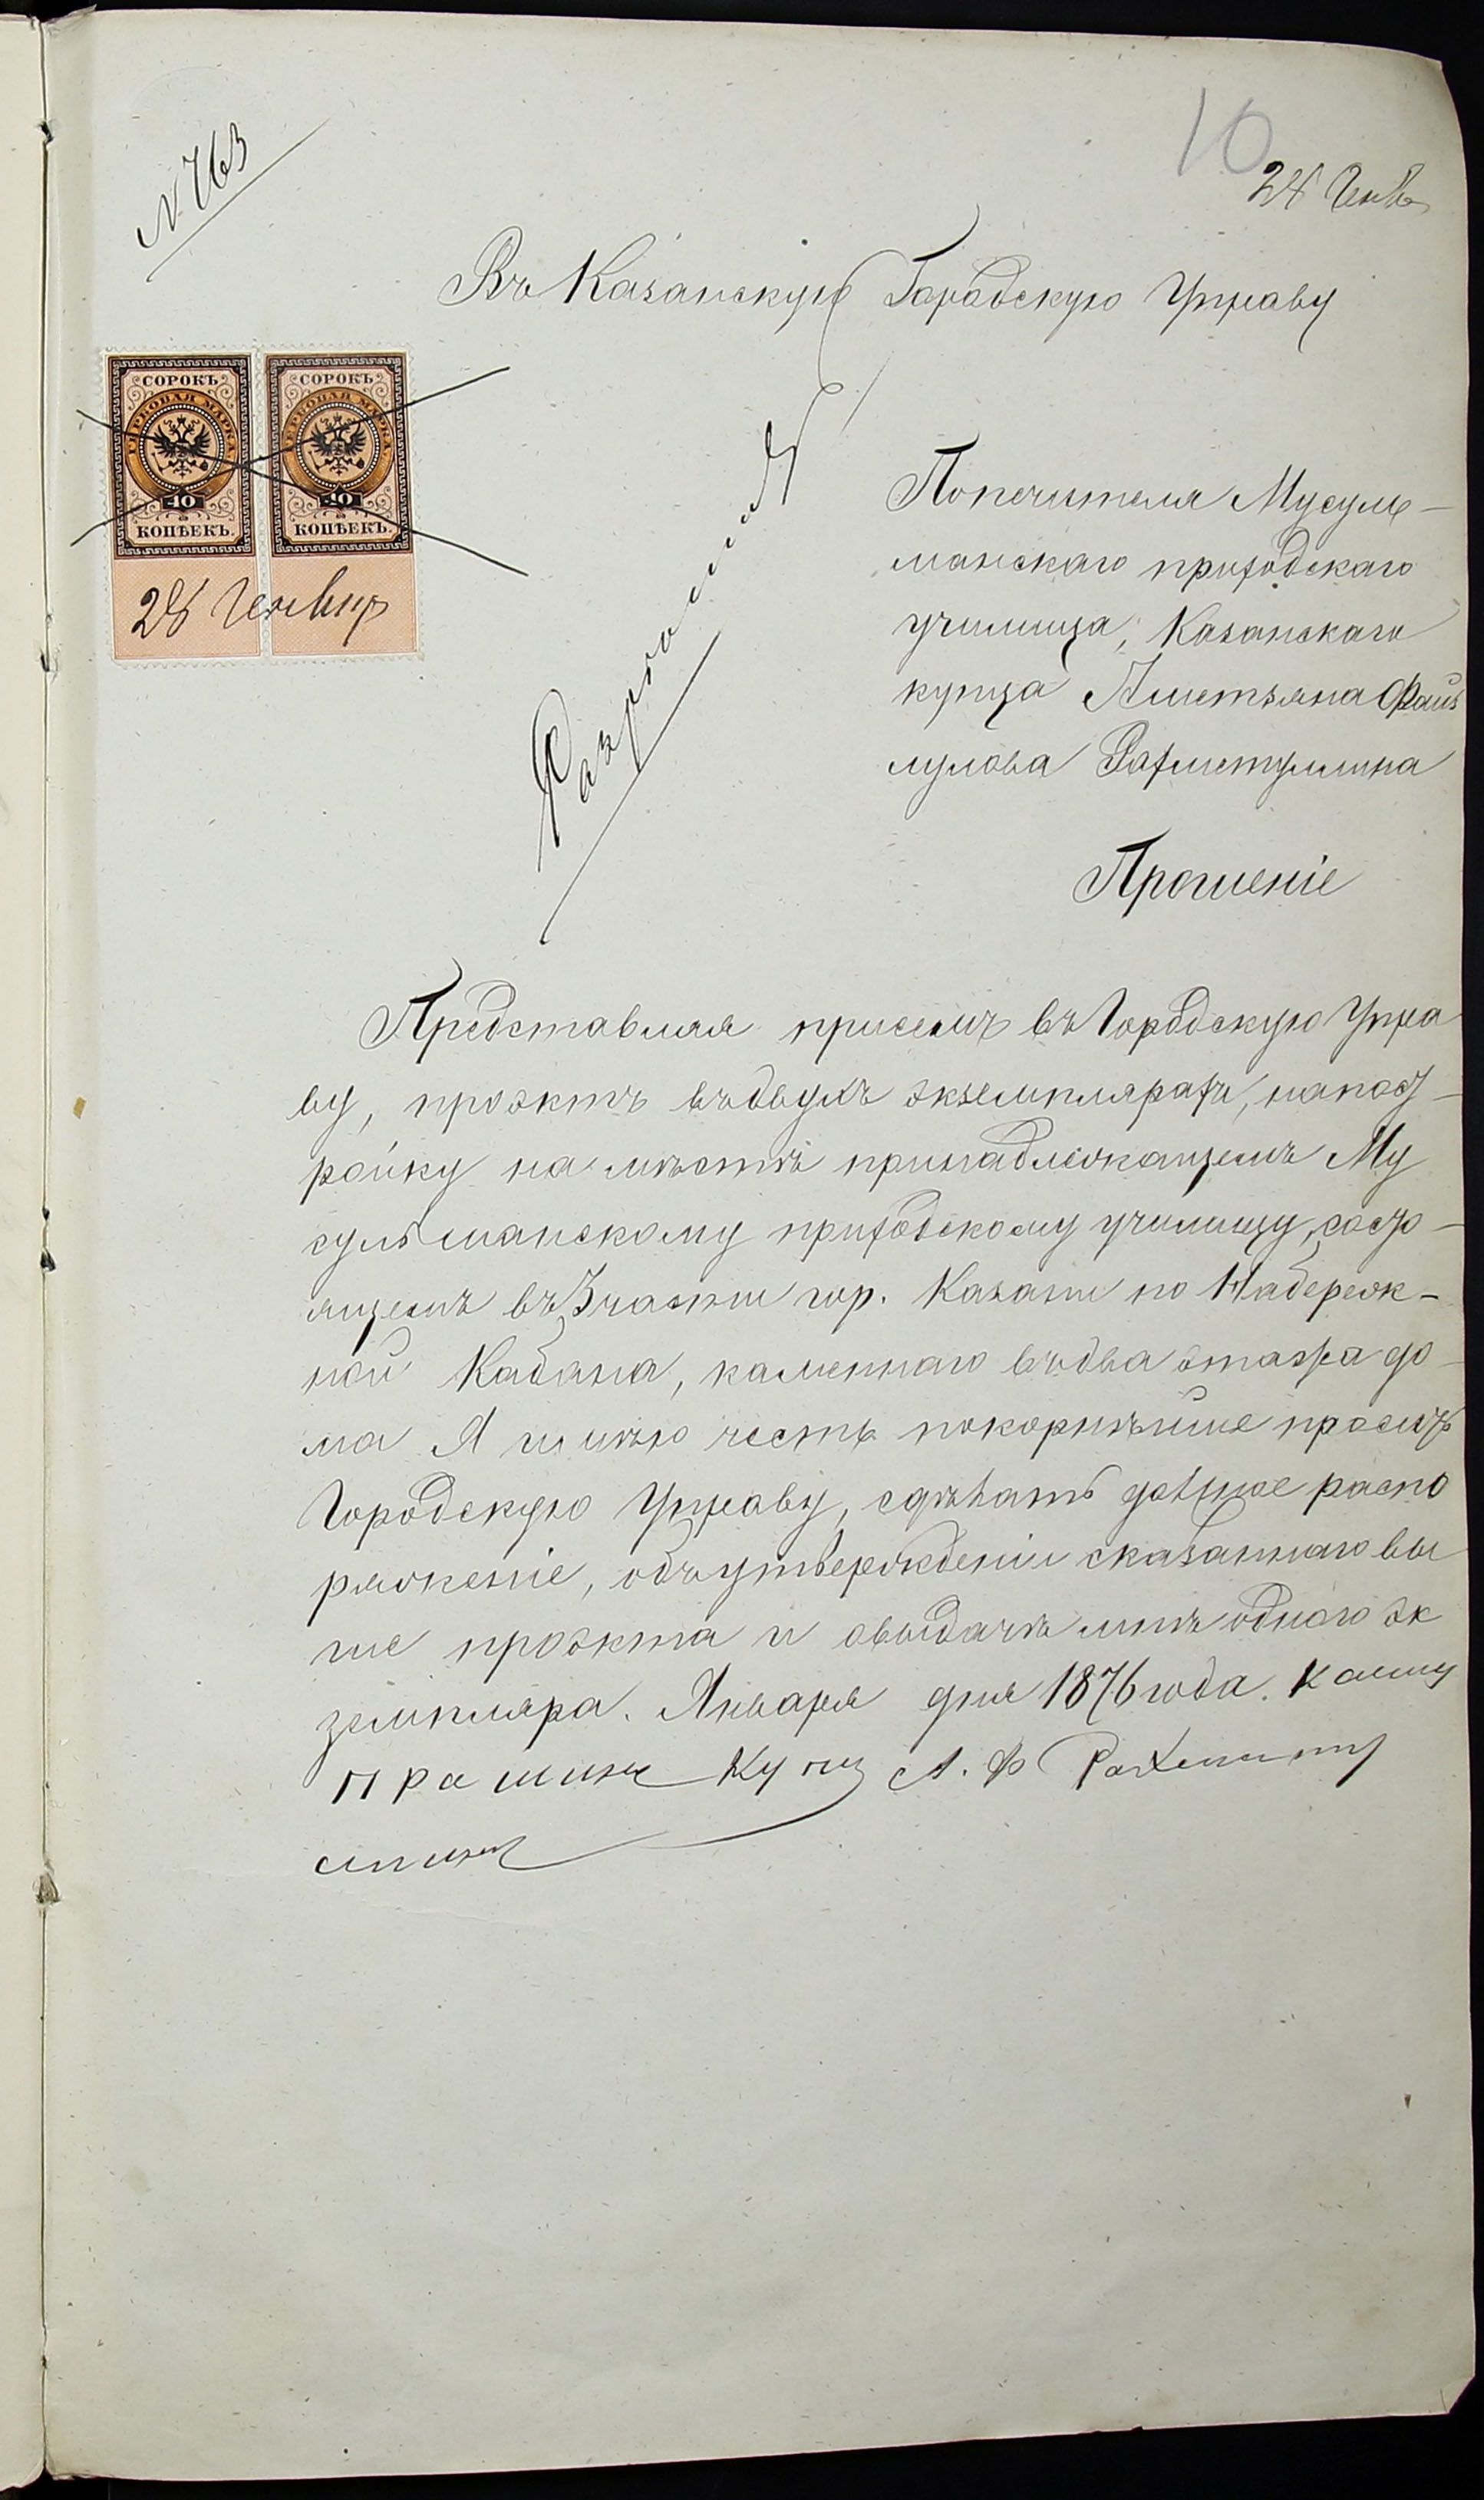 10
№ 763
28 Генв
Въ Казанскую Городскую Управу
СОРОКЪ
ГЕРБОВАЯ МАРКА
40
КОПѢЕКЪ.
СОРОКЪ
ГЕРБОВАЯ МАРКА
40
КОПѢЕКЪ.
28 Генвар
Попечителя Мусуль-
манскаго приходскаго
училища, Казанскаго
купца Ахметзяна Файз
лулова Рахметуллина
Прошеніе
Представляя присемъ въ Городскую Упра
ву, проэктъ въдвухъ экземплярахъ, напост-
ройку на мѣстѣ принадлежащемъ Му
сульманскому приходскому училищу, состо-
ящемъ въ 3 части гор. Казани по Набереж-
ной Кабана, каменнаго въдва этажа до-
ма Я имѣю честь покорнѣйше просить
Городскую Управу, сдѣлать должное распо
ряженіе, объутвержденіи сказаннаго вы
ше проэкта и овыдачѣ мнѣ одного эк
земпляра. Января дня 1876 года. К сему
Купц А. Ф